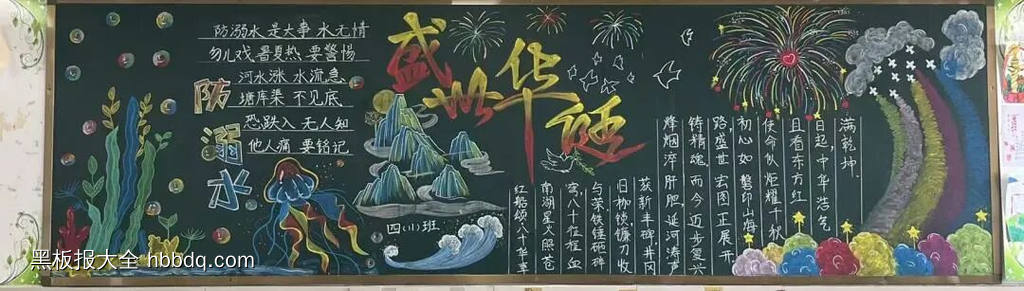 防溺水是大事 水无情
勿儿戏 暑夏热 要警惕
河水涨 水流急
塘库渠 不见底
恐跌入 无人知
他人痛 要铭记
防溺水
盛世华诞
四(1)班
红船颂八十华章
南湖星火照苍
穹八十征程血
与荣铁锤砸碎
旧枷锁镰刀收
获新丰碑井冈
烽烟淬肝胆延河涛声
铸精魂而今迈步复兴
路,盛世宏图正展开
初心如磐印山海
使命似炬耀千秋
且看东方红
日起,中华浩气
满乾坤.
黑板报大全 hbbdq.com